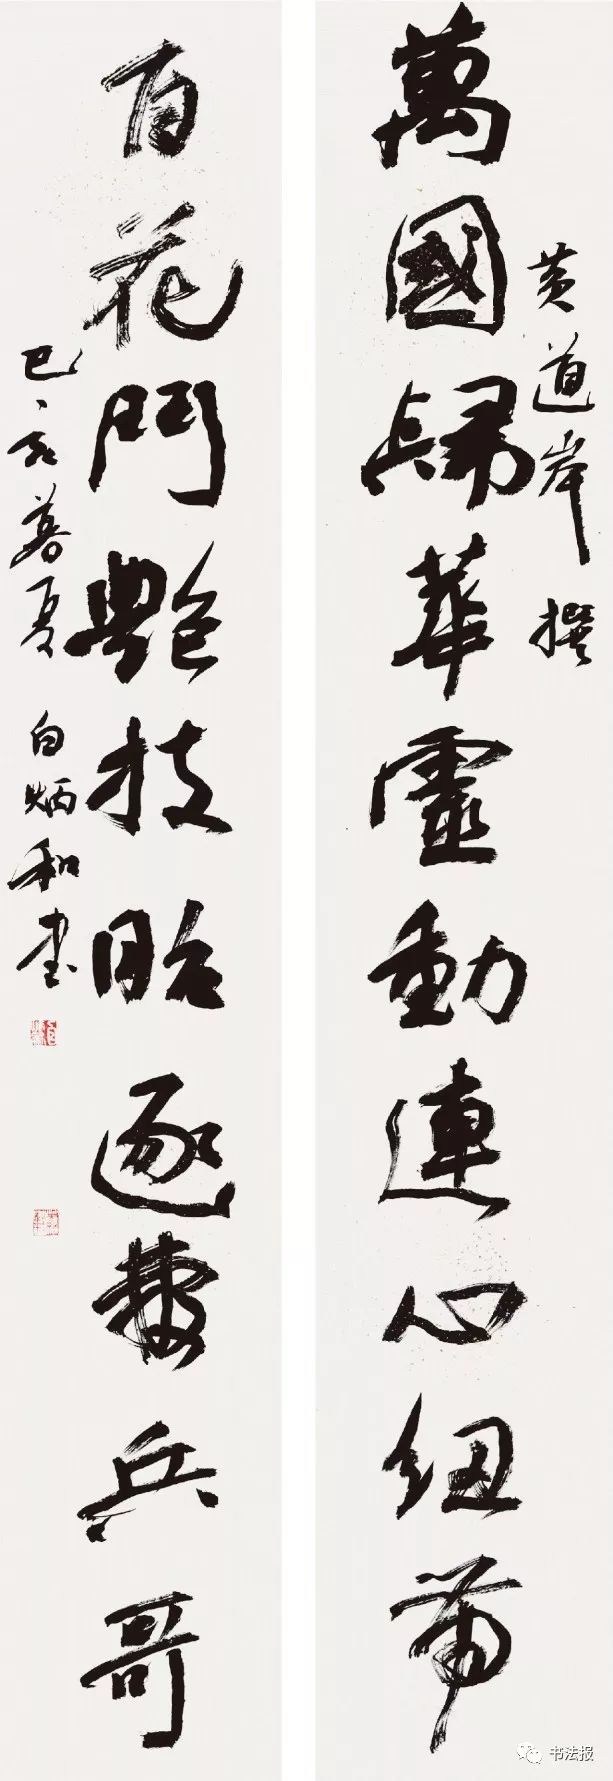 萬國歸華靈動連心紐帶
黄道岸撰
百花鬥艷技昭逐夢兵哥
己亥暮夏 白炳和書
书法报